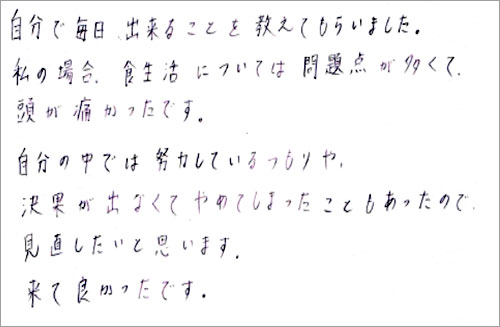 自分で毎日、出来ることを教えてもらいました。
私の場合、食生活については問題点が多くて、
頭が痛かったです。
自分の中では努力しているつもりや、
決果が出なくてやめてしまったこともあったので、
見直したいと思います。
来て良かったです。